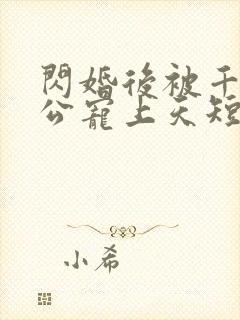 閃婚後被千
公寵上天短
小希